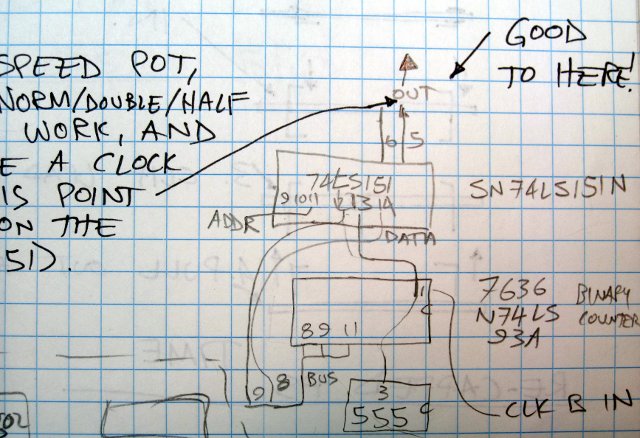 SPEED POT,
NORM/DOUBLE/HALF
WORK, AND
E A CLOCK
IS POINT
ON THE
51).
GOOD
TO HERE!
OUT
6 5
74LS151
9 10 11 12 13 14
ADDR
DATA
SN74LS151N
7636
N74LS
93A
BINARY
COUNTER
1
8 9 11
BUS
9 8
3
555
C
CLK B IN